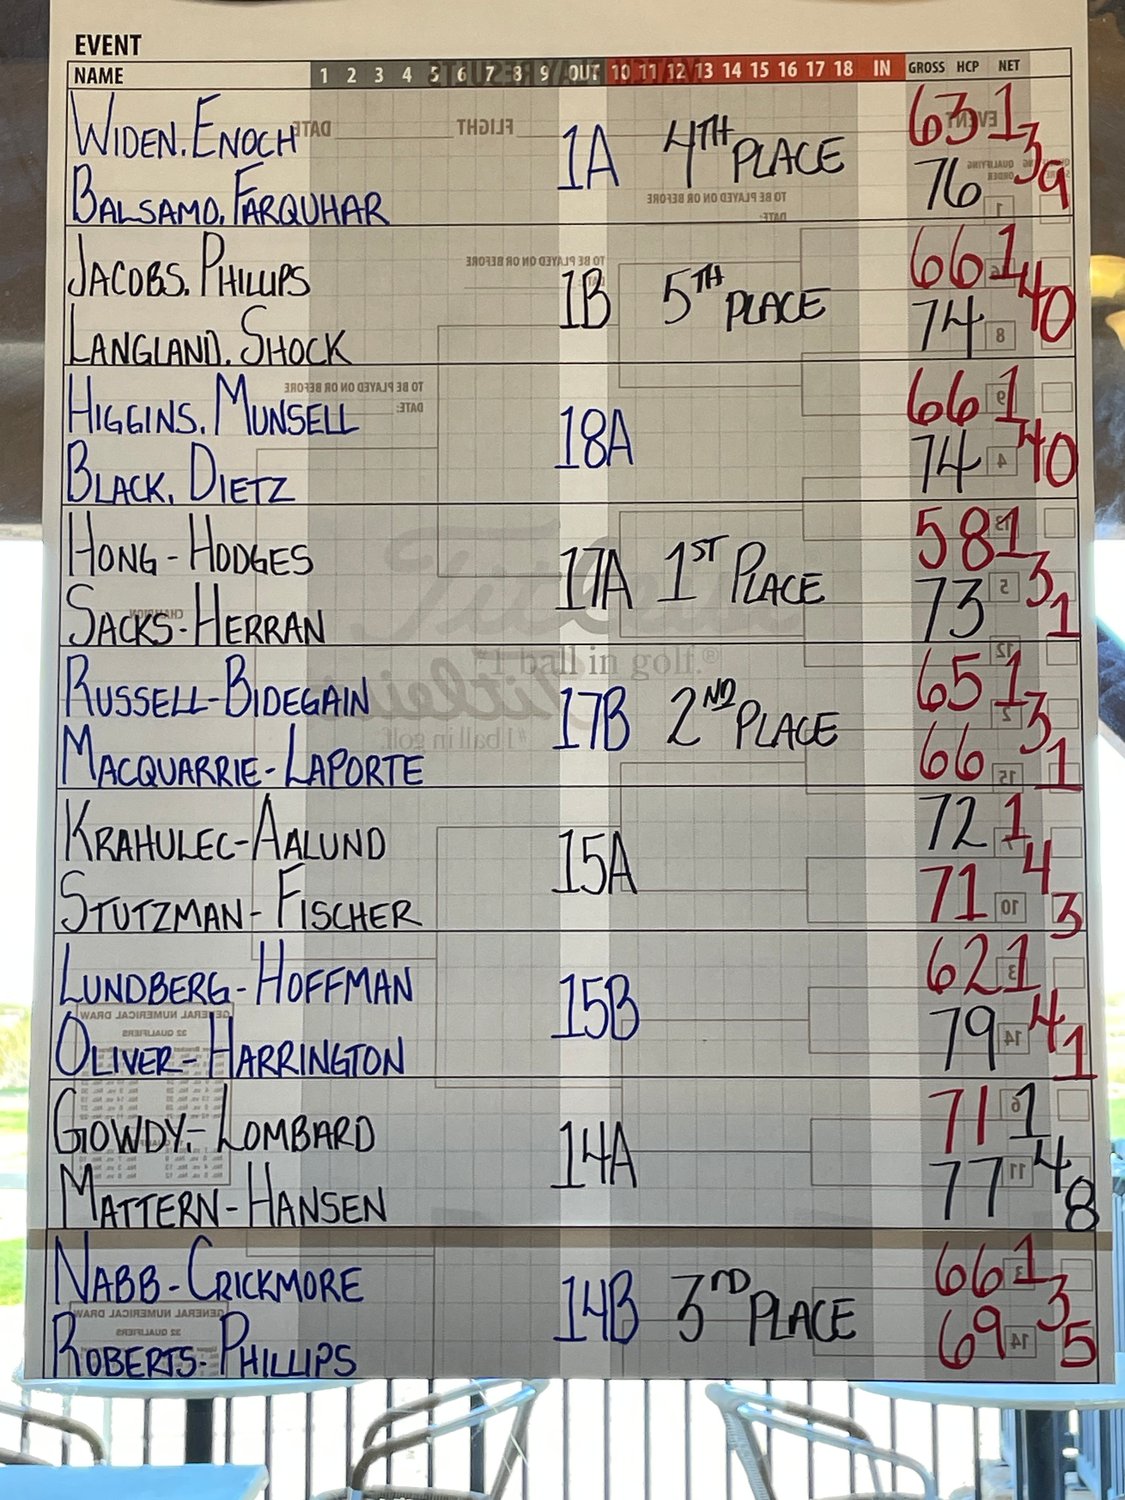 EVENT
NAME 1 2 3 4 5 6 7 8 9 OUT 10 11 12 13 14 15 16 17 18 IN GROSS HCP NET
WIDEN, ENOCH 63
BALSAMO, FARQUHAR 1A 4TH PLACE 76 139
JACOBS, PHILLIPS 66
LANGLAND, SHOCK 1B 5TH PLACE 74 140
HIGGINS, MUNSELL 66
BLACK, DIETZ 18A 74 140
HONG-HODGES 58
SACKS-HERRAN 17A 1ST PLACE 73 131
RUSSELL-BIDEGAIN 65
MACQUARRIE-LAPORTE 17B 2ND PLACE 66 131
KRAHULEC-AALUND 72
STUTZMAN-FISCHER 15A 71 143
LUNDBERG-HOFFMAN 62
OLIVER-HARRINGTON 15B 79 141
GOWDY,-LOMBARD 71
MATTERN-HANSEN 14A 77 148
NABB-CRICKMORE 66
ROBERTS-PHILLIPS 14B 3RD PLACE 69 135
Titleist
#1 ball in golf.®